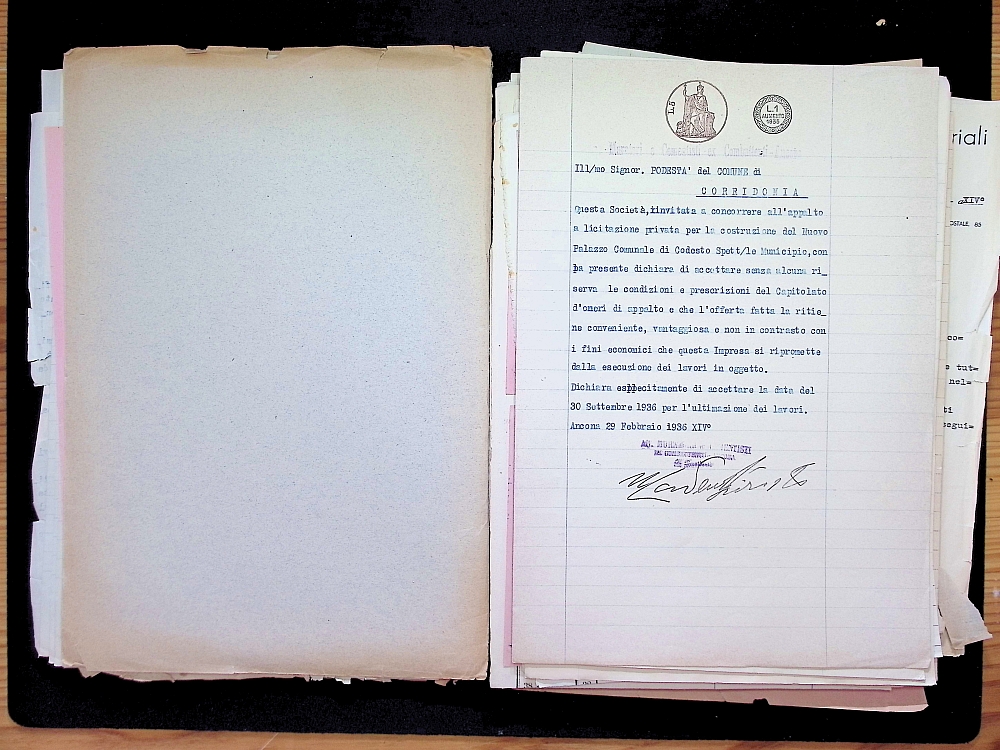 L.5
L.1
AUMENTO
1935
Ill/mo Signor. PODESTA' del COMUNE di
CORRIDONIA
Questa Società, invitata a concorrere all'appalto
a licitazione privata per la costruzione del Nuovo
Palazzo Comunale di Codesto Spett/le Municipio,con
la presente dichiara di accettare senza alcuna ri_
serva le condizioni e prescrizioni del Capitolato
d'oneri di appalto e che l'offerta fatta la ritie_
ne conveniente, vantaggiosa e non in contrasto con
i fini economici che questa Impresa si ripromette
dalla esecuzione dei lavori in oggetto.
Dichiara esppecitamente di accettare la data del
30 Settembre 1936 per l'ultimazione dei lavori.
Ancona 29 Febbraio 1936 XIV°
riali
XIV°
OSTALE 85
co=
e tut=
nel=
ti
segui=